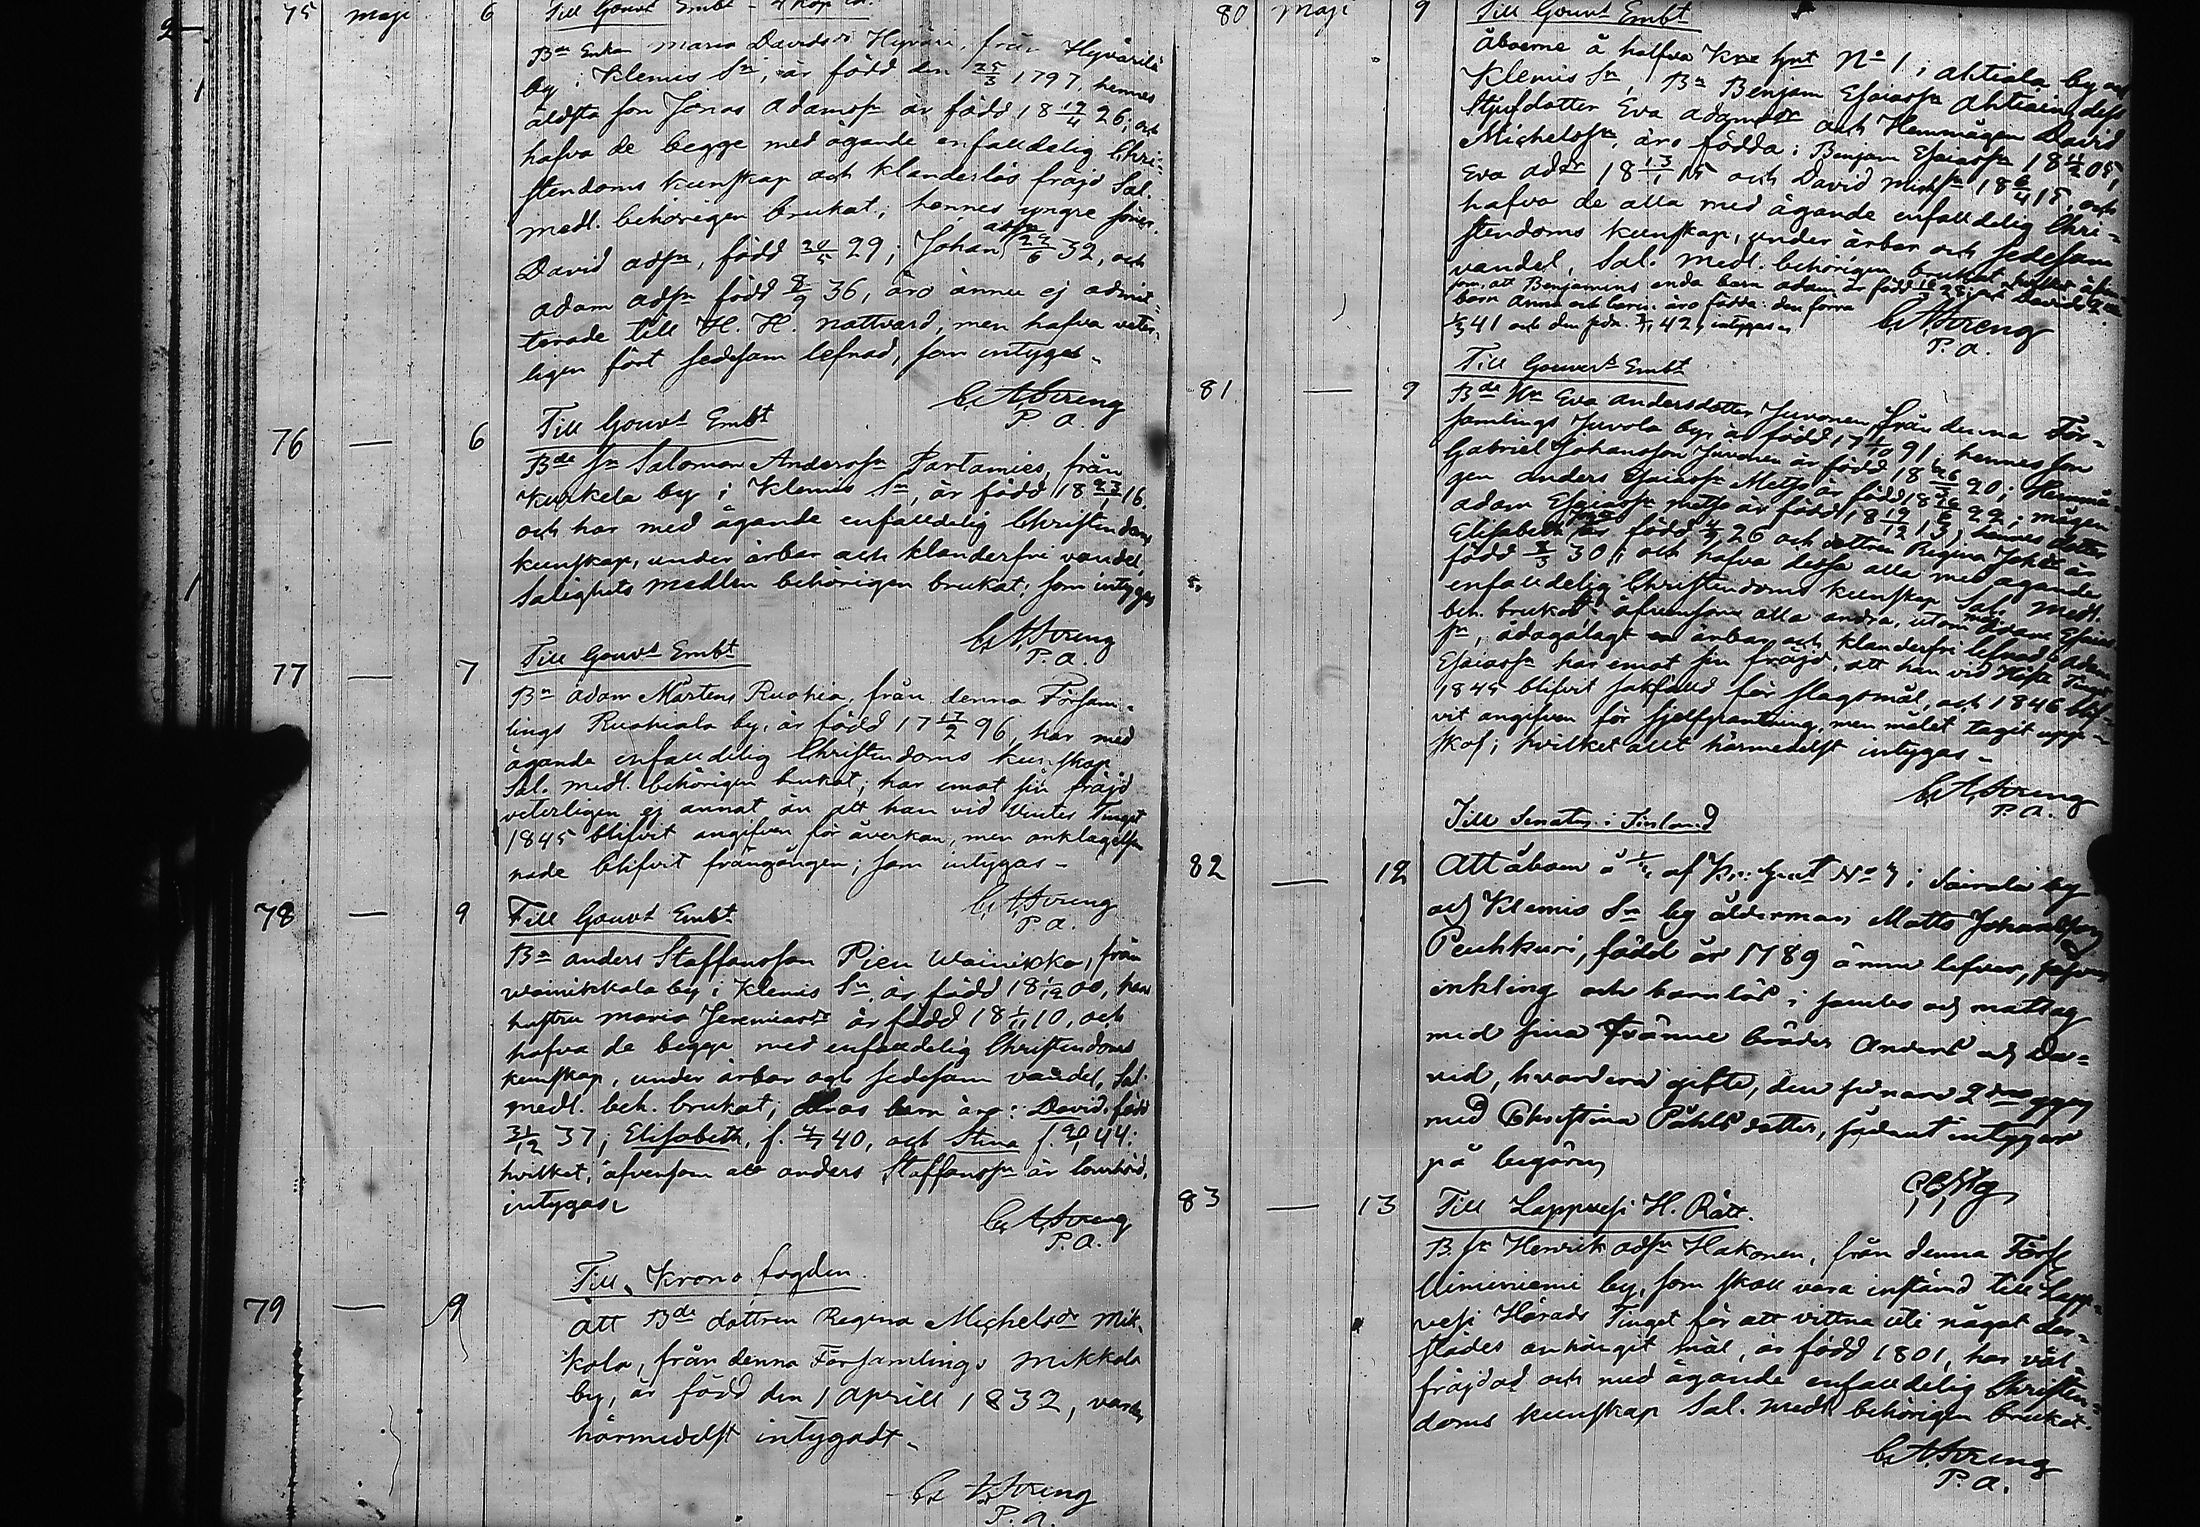 75 Maji 6 Till Gouvts Embt
Bde Enkan Maria Davidsdr Hyväri, från Hyvärilä
by i Klemis Sn, är född den 25/3 1797, hennes
äldsta son Jonas Adamsſn är född 18 19/4 26; och
hafva de begge med ägande enfaldelig Chri-
stendoms kunſkap och klanderlös fräjd Sal.
medl. behörigen brukat; hennes yngre söner
David Adſn, född 20/5 29; Johan Adſn 29/6 32, och
Adam Adſn född 8/9 36, äro ännu ej admit-
terade till H. H. nattvard, men hafva veter-
ligen fört sedesam lefnad, som intygas
C. A. Streng
P. A.
76 — 6 Till Gouvts Embt
Bde Sn Salomon Andersſn Partamies, från
Kurkela by i Klemis Sn, är född 18 23/ 16.
och har med ägande enfaldelig Christendoms
kunſkap, under ärbar och klanderfri vandel,
Salighets medlen behörigen brukat; som intygas
C. A. Streng
P. A.
77 — 7 Till Gouvts Embt
Bn Adam Mårtens Ruohia, från denna Församl-
lings Ruohiala by, är född 17 17/2 96, har med
ägande enfaldelig Christendoms kunſkap
Sal. medl. behörigen brukat; har emot sin fräjd
veterligen ej annat än att han vid Vinter Tinget
1845 blifvit angifven för åverkan, men anklagelsen
nade blifvit frångången; som intygas
C. A. Streng
P. A.
78 — 9 Till Gouvts Embt
Bn Anders Staffansson Pien Wainikka, från
Wainikkala by i Klemis Sn är född 18 1/12 00, hans
hustru Maria Jeremiasdr är född 18 1/11 10, och
hafva de begge med enfaldelig Christendoms
kunſkap, under ärbar och sedesam vandel, Sal.
medl. beh. brukat; deras barn äro: David, född
31/12 37; Elisabeth, f. 4/7 40, och Stina f. 20/ 44;
hvilket, äfvensom att Anders Staffansſn är lomhörd,
intygas
C. A. Streng
P. A.
79 — 9 Till Krono fogden
Att Bde dottren Regina Michelsdr Mik-
kola, från denna Församlings Mikkola
by, är född den 1 Aprill 1832, varder
härmedelst intygadt
C. A. Streng
P. A.
80 Maji 9 Till Gouvts Embt
Åboerne å halfva Kro Hmt No 1 i Ahtiala by
Klemis Sn, Bn Benjam Esaiasſn Ahtiain, dess
Styfdotter Eva Adamsdr och Hemmågen David
Michelsſn, äro födda: Benjam Esaiasſn 18 4/2 05,
Eva Addr 18 13/1 15 och David Michſn 18 8/4 15, och
hafva de alla med ägande enfaldelig Chri-
stendoms kunſkap, under ärbar och sedesam
vandel, Sal. medl. behörigen brukat
som, att Benjamins enda barn Adam är född och Davids 2ne
barn Anna och äro födda: den förra
1/3 41 och den sedn. 42, intygas
C. A. Streng
P. A.
81 — 9 Till Gouverts Embt
Bde Eva Andersdotter Juvonen från denna För-
samlings Juvola by, är född 17 1/10 91; hennes son
Gabriel Johansson Juvonen är född 18 20; Hemmå-
gen Anders Esaiasſn Metso är född 18 22; mågen
Adam Esaiasſn Metso är född 18 19/12 13, hennes dotter
Elisabeth är född 26 och dottren Regina Johdr är
född 2/3 30; och hafva dessa alla med ägande
enfaldelig Christendoms kunſkap Sal. medl.
beh. brukat; äfvensom alla andra, utom Adam Esaias
ſn, ådagalagt en ärbar och klanderfri lefnad; Adam
Esaiasſn har emot sin fräjd, att han vid Höste Tinget
1845 blifvit sakfälld för slagsmål, och 1846 blif-
vit angifven för sjelfpantning, men målet tagit upp-
skof; hvilket allt härmedelst intygas
C. A. Streng
P. A.
Till Senaten i Finland
82 — 12 Att åboen å af Kro Hmt No i by
och Klemis Sn by ålderman Matts Johansson
Peuhkuri, född år 1789 ännu lefver,
inkling och barnlös i samles och matlag
med sina tvänne bröder Anders och Da-
vid, hvardera gifte, den senare 2dra gången
med Christina Påhls dotter, sådant intygas
på begäran
83 — 13 Till Lappvesi H. Rätt.
B. Sn Henrik Adſn Hakonen, från denna Förs.
Uiminiemi by, som skall vara instämd till Lapp-
vesi Härads Tinget för att vittna uti något der-
städes anhängigt mål, är född 1801, har väl-
fräjdad och med ägande enfaldelig Christen-
doms kunſkap Sal. medl. behörigen brukat.
C. A. Streng
P. A.